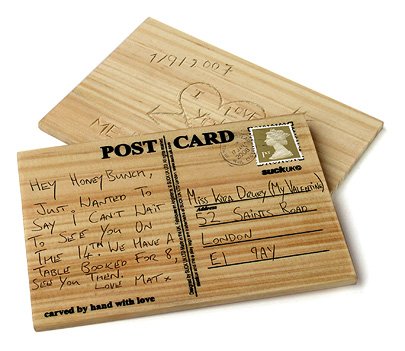 1/9/2007
I
LOVE
ME
POST CARD
HEY HONEYBUNCH,
JUST WANTED TO
SAY I CAN'T WAIT
TO SEE YOU ON
THE 14TH. WE HAVE A
TABLE BOOKED FOR 8,
SEE YOU THEN.
LOVE MAT x
carved by hand with love
1ST
SUCKUKUK
MISS KIRA DELVEY (MY VALENTINE)
52 SAINTS ROAD
LONDON
E1 9AY